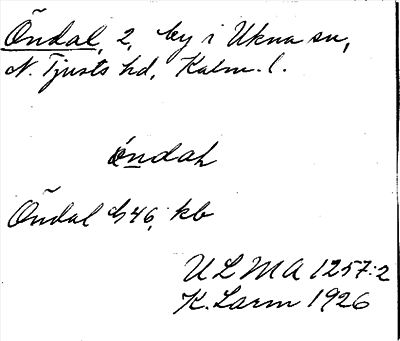 Öndal, 2, by i Ukna sn,
N. Tjusts hd, Kalm. l.
öndal
Öndal 1/4 6, kb
ULMA 1257:2
K. Larm 1926